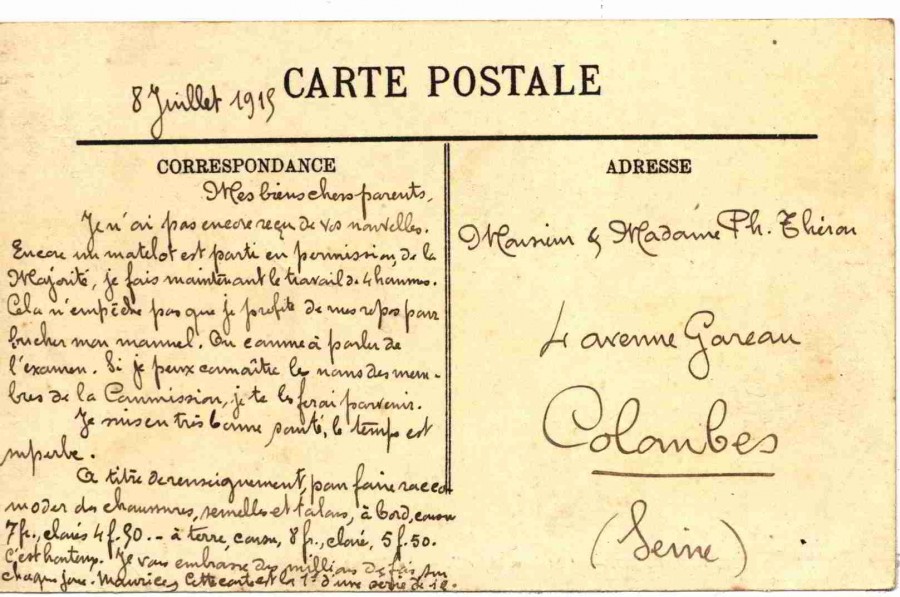 8 Juillet 1915
CARTE POSTALE
CORRESPONDANCE
Mes biens chers parents,
Je n'ai pas encore reçu de vos nouvelles.
Encore un matelot est parti en permission, de la
Majorité, je fais maintenant le travail de 4 hommes.
Cela n'empêche pas que je profite de mes repos pour
bucher mon manuel. On comme à parler de
l'examen. Si je peux connaître les noms des mem-
bres de la Commission, je te les ferai parvenir.
Je suis en très bonne santé, le temps est
superbe.
A titre de renseignement, pour faire racco-
moder des chaussures, semelles et talons, à bord, cousu
7 fr., cloués 4 f. 50. - à terre, cousu, 8 fr., cloué, 5 f. 50.
C'est honteux. Je vous embrasse des millions de fois sur
chaque joue. Maurice, Cette carte est la 1e d'une série de
ADRESSE
Monsieur & Madame Ph. Théron
4 avenue Gareau
Colombes
(Seine)